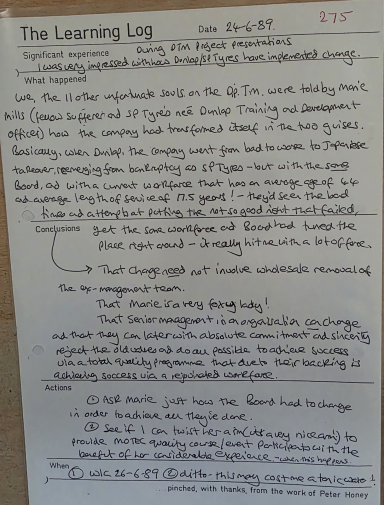 275
The Learning Log Date 24-6-89.
Significant experience During DTM Project presentations
I was very impressed with how Dunlop/SP Tyres have implemented change.
What happened
We, the 11 other unfortunate souls on the Dp. T.M. were told by Marie
Mills (fellow sufferer and SP Tyres neé Dunlop Training and Development
officer) how the company had transformed itself in the two guises.
Basically, when Dunlop, the company went from bad to worse to Japanese
takeover, reemerging from bankruptcy as SP Tyres - but with the same
Board, and with a current workforce that has an average age of 44
and average length of service of 17.5 years! - they'd seen the bad
times and attempts at putting the not so good right that failed,
Conclusions yet the same workforce and Board had turned the
place right around - it really hit me with a lot of force.
→ That change need not involve wholesale removal of
the ex-management team.
That Marie is a very foxy lady!
That Senior management in an organisation can change
and that they can later with absolute commitment and sincerity
reject the old values and do all possible to achieve success
via a total quality programme that due to their backing is
achieving success via a rejuvinated workforce.
Actions
① Ask Marie just how the Board had to change
in order to achieve all they've done.
② See if I can twist her arm (it's a very nice arm) to
provide MOTEC quality course/event participants with the
benefit of her considerable experience - when this happens.
When ① w/c 26-6-89 ② ditto - this may cost me a tonic water!
...pinched, with thanks, from the work of Peter Honey